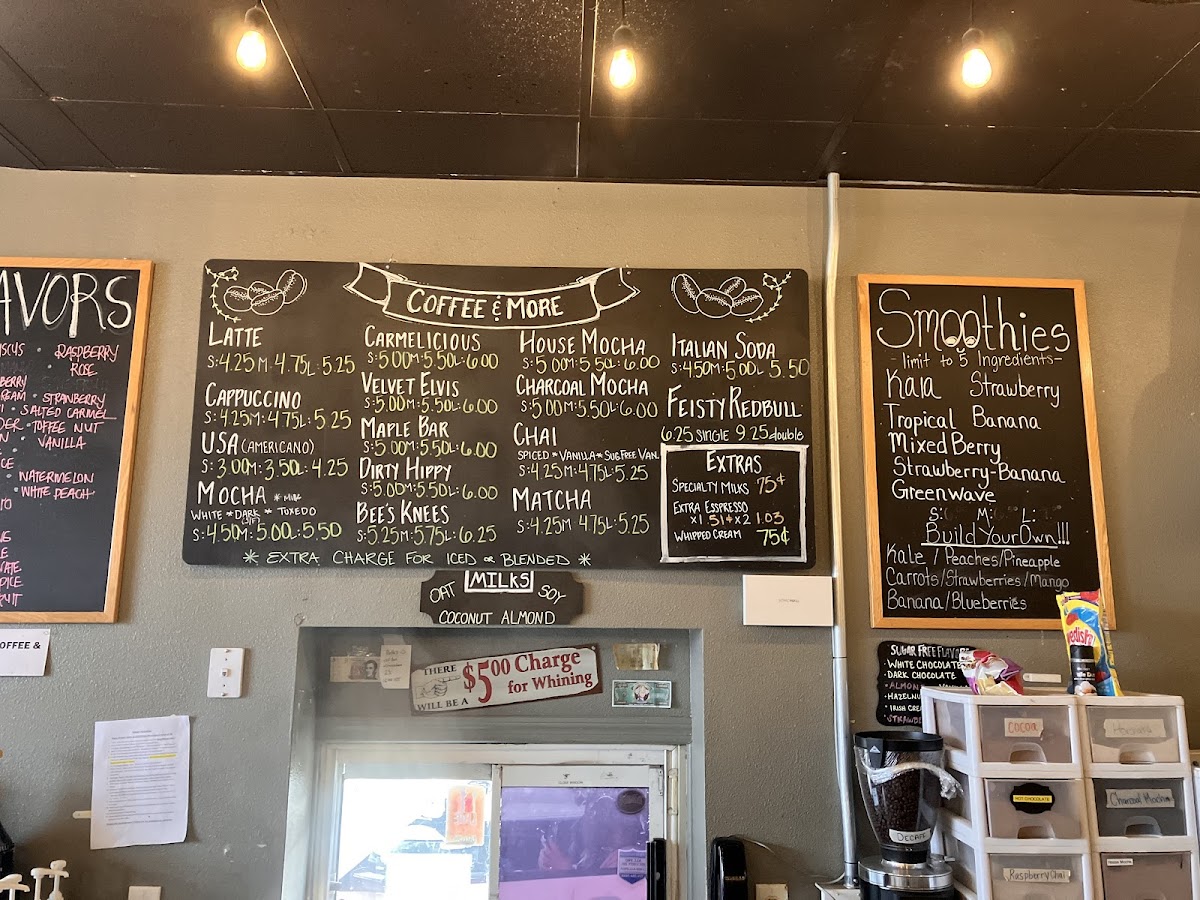 AVORS
RASPBERRY
ROSE
STRAWBERRY
SALTED CARAMEL
TOFFEE NUT
VANILLA
WATERMELON
WHITE PEACH
OFFEE &
COFFEE & MORE
LATTE
S: 4.25 M: 4.75 L: 5.25
CAPPUCCINO
S: 4.25 M: 4.75 L: 5.25
USA (AMERICANO)
S: 3.00 M: 3.50 L: 4.25
MOCHA * MILK
WHITE * DARK * TUXEDO
S: 4.50 M: 5.00 L: 5.50
CARMELICIOUS
S: 5.00 M: 5.50 L: 6.00
VELVET ELVIS
S: 5.00 M: 5.50 L: 6.00
MAPLE BAR
S: 5.00 M: 5.50 L: 6.00
DIRTY HIPPY
S: 5.00 M: 5.50 L: 6.00
BEE'S KNEES
S: 5.25 M: 5.75 L: 6.25
HOUSE MOCHA
S: 5.00 M: 5.50 L: 6.00
CHARCOAL MOCHA
S: 5.00 M: 5.50 L: 6.00
CHAI
SPICED * VANILLA * SUG FREE VAN.
S: 4.25 M: 4.75 L: 5.25
MATCHA
S: 4.25 M: 4.75 L: 5.25
ITALIAN SODA
S: 4.50 M: 5.00 L: 5.50
FEISTY REDBULL
6.25 single 9.25 double
EXTRAS
SPECIALTY MILKS 75¢
EXTRA ESSPRESSO
x1 .51¢ x2 1.03
WHIPPED CREAM 75¢
* EXTRA CHARGE FOR ICED or BLENDED *
OAT MILKS SOY
COCONUT ALMOND
THERE WILL BE A $5.00 Charge
for Whining
Smoothies
- limit to 5 Ingredients -
Kala Strawberry
Tropical Banana
Mixed Berry
Strawberry-Banana
Greenwave
S: M: L:
Build Your Own!!!
Kale / Peaches / Pineapple
Carrots / Strawberries / Mango
Banana / Blueberries
SUGAR FREE FLAVORS
· WHITE CHOCOLATE
· DARK CHOCOLATE
· ALMOND
· HAZELNU
· IRISH CRE
· STRAWBE
COCOA
HOT CHOCOLATE
Charcoal Mocha
DECAFE
Raspberry Chai
House Mocha